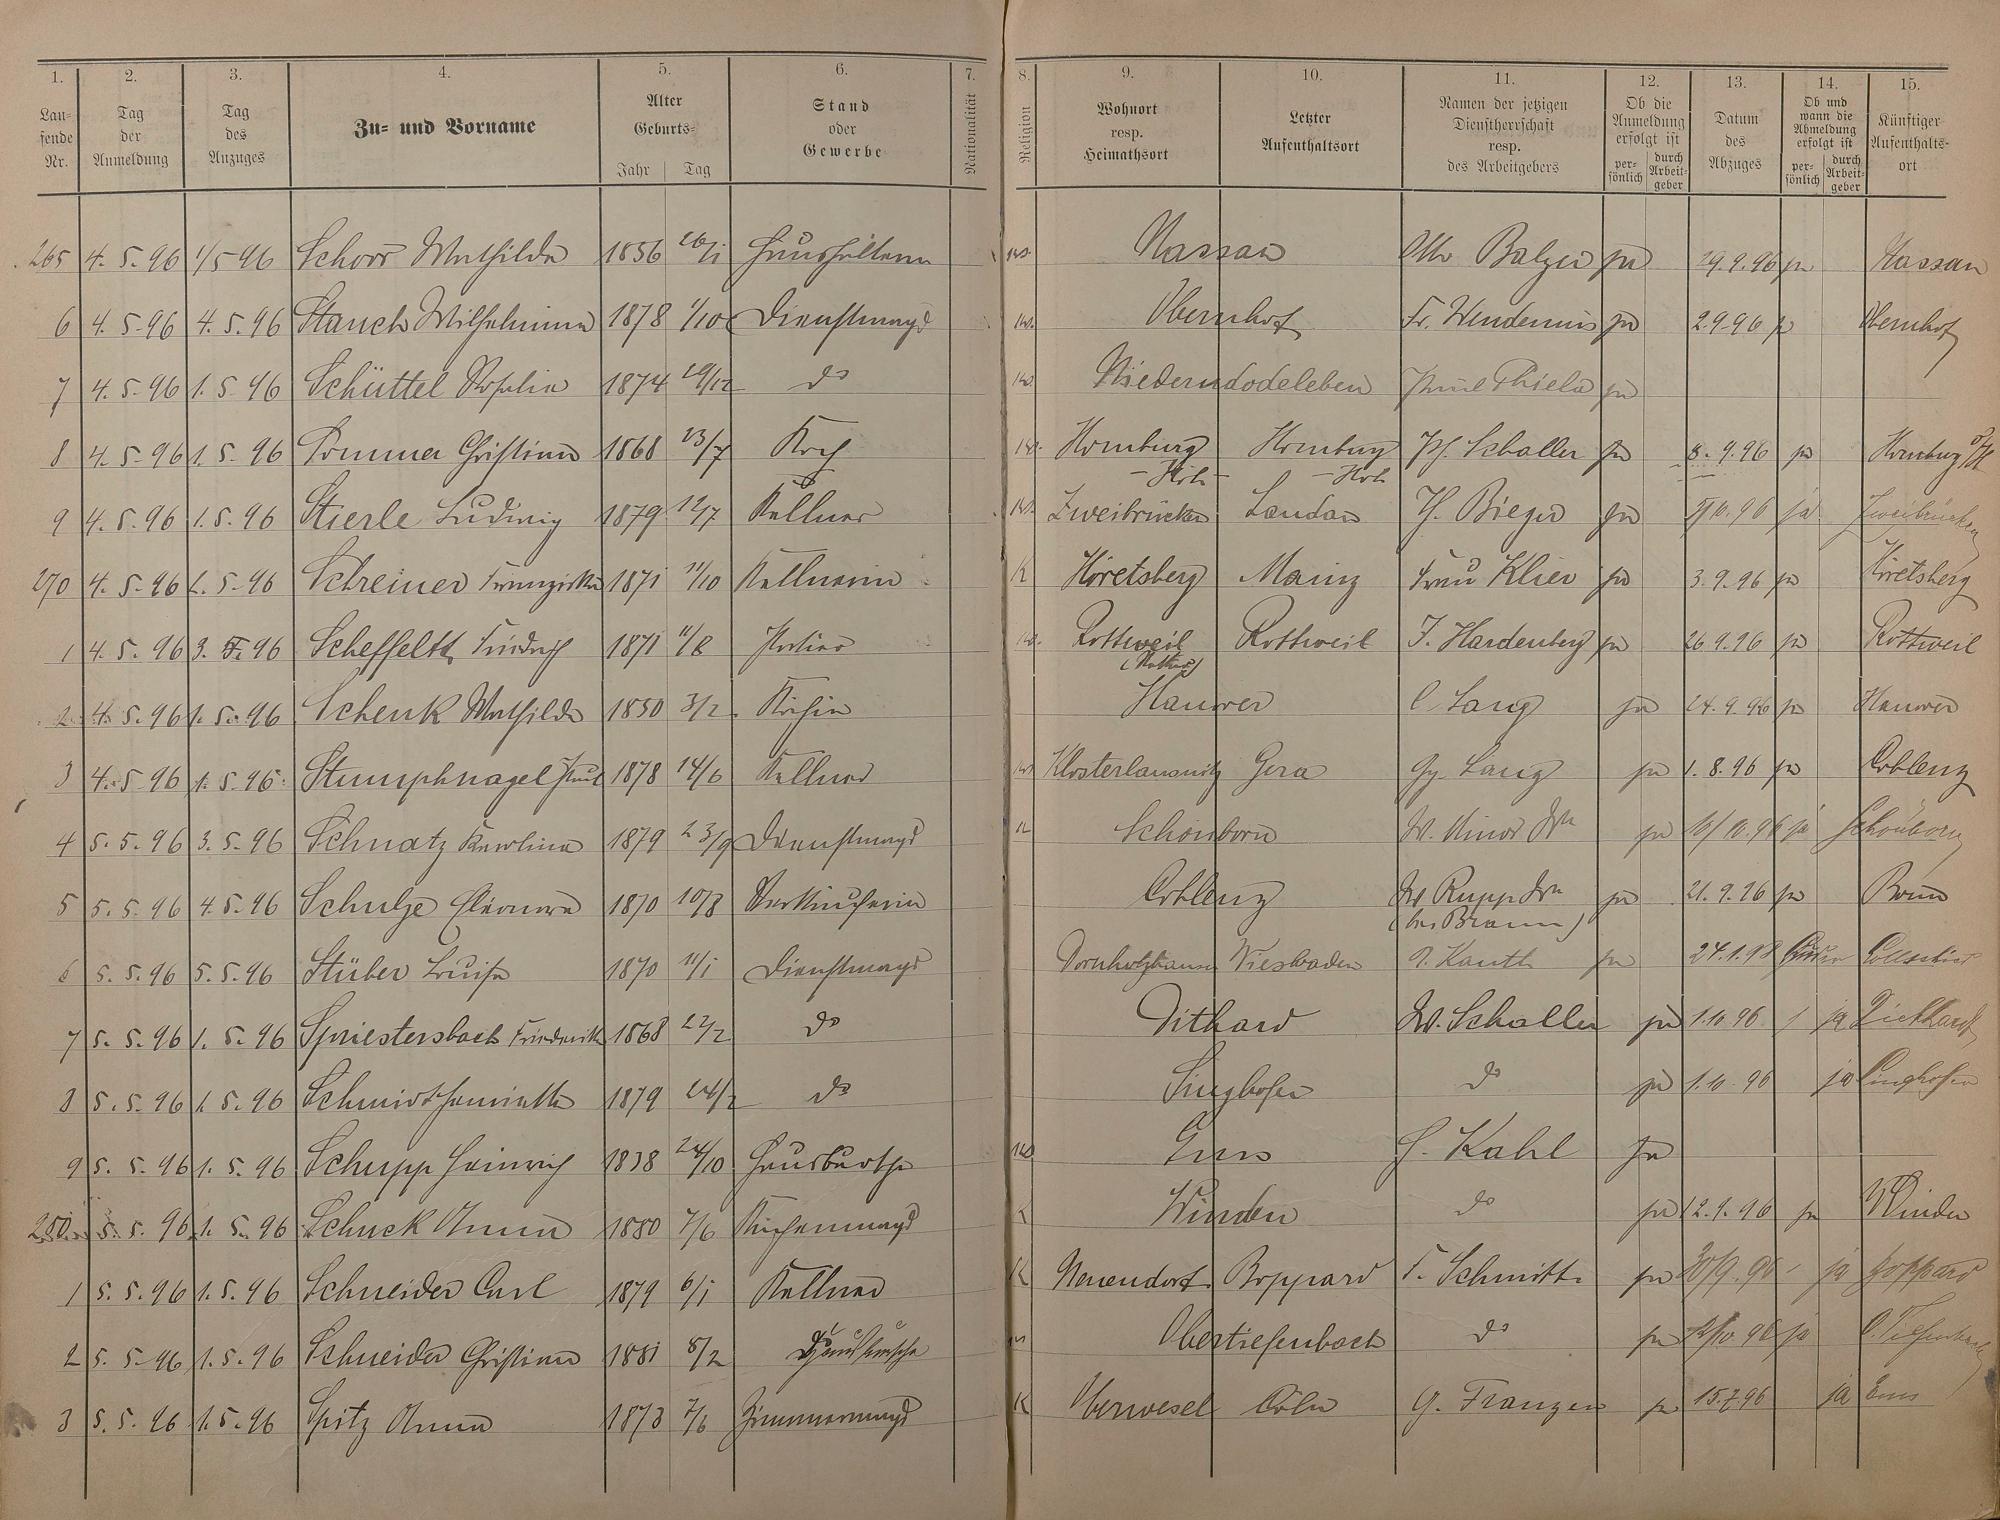 1. 2. 3. 4. 5. 6. 7. 8. 9. 10. 11. 12. 13. 14. 15.
Lau-
fende
Nr.
Tag
der
Anmeldung
Tag
des
Anzuges
Zu- und Vorname
Alter
Geburts-
Jahr Tag
Stand
oder
Gewerbe
Nationalität
Religion
Wohnort
resp.
Heimathsort
Letzter
Aufenthaltsort
Namen der jetzigen
Dienstherrschaft
resp.
des Arbeitgebers
Ob die
Anmeldung
erfolgt ist
per-
sönlich
durch
Arbeit-
geber
Datum
des
Abzuges
Ob und
wann die
Abmeldung
erfolgt ist
per-
sönlich
durch
Arbeit-
geber
Künftiger
Aufenthalts-
ort
265 4. 5. 96 1/5 96 Schorr Mathilde 1856 Haushälterin Nassau Balzer ja 29.9.96 ja Nassau
6 4. 5. 96 4. 5. 96 Stauch Wilhelmine 1878 1/10 Dienstmagd Obernhof Fr. ja 2.9.96 ja Obernhof
7 4. 5. 96 1. 5. 96 Schüttel Rosalie 1874 29/12 do Niederndodeleben Paul Thiele ja
8 4. 5. 96 1. 5. 96 Christian 1868 23/7 Koch Homburg Homburg Schaller ja 8. 9. 96 ja Homburg
9 4. 5. 96 1. 5. 96 Stierle Ludwig 1879 12/7 Kellner Zweibrücken Landau Bieger ja 96 ja Zweibrücken
270 4. 5. 96 1. 5. 96 Schreiner Franziska 1871 11/10 Kellnerin K Höretsberg Mainz Frau Klier ja 3.9.96 ja Höretsberg
1 4. 5. 96 3. 5. 96 Scheffeltt Friedrich 1871 11/8 Portier Rottweil Rottweil J. Hardenberg ja 26.9.96 ja Rottweil
2 4. 5. 96 1. 5. 96 Schenk Mathilde 1850 3/2 Köchin Hanover C. Lang ja 24. 9. 96 ja Hanover
3 4. 5. 96 1. 5. 96 Stumphnagel Paul 1878 14/6 Kellner Klosterlausnitz Gera Gg. Lang ja 1. 8. 96 ja Coblenz
4 5. 5. 96 3. 5. 96 Schnatz Karoline 1879 23/9 Dienstmagd K Schönborn W. Minor Ww ja 10/10.96 ja Schönborn
5 5. 5. 96 4. 5. 96 Schulze Eleonore 1870 10/8 Verkäuferin Coblenz W Rupp Ww ja 21. 9. 96 ja Bonn
(bei Braun)
6 5. 5. 96 5. 5. 96 Stüber Luise 1870 11/1 Dienstmagd Dornholzhausen Wiesbaden Kauth ja 24.1.98
7 5. 5. 96 1. 5. 96 Spriestersbach Friederike 1868 22/2 do Dithard W. Schaller ja 1.10.96 ja
8 5. 5. 96 1. 5. 96 Schmidt Henriette 1879 24/2 do Singhofen do ja 1.10.96 ja Singhofen
9 5. 5. 96 1. 5. 96 Schupp Heinrich 1838 24/10 Hausbursche Ems H. Kahl ja
280 5. 5. 96 1. 5. 96 Schuck Anna 1880 7/6 Küchenmagd K Winden do ja 12.9.96 ja Winden
1 5. 5. 96 1. 5. 96 Schneider Carl 1879 6/1 Kellner K Neuendorf Boppard F. Schmitt ja 30/9. 96 ja Boppard
2 5. 5. 96 1. 5. 96 Schneider Christian 1881 8/2 Hausbursche Obertiefenbach do ja 96 ja O. Tiefenbach
3 5. 5. 96 1. 5. 96 Spitz Anna 1873 7/6 Zimmermagd K Oberwesel Cöln G. Franzen ja 15.7.96 ja Ems